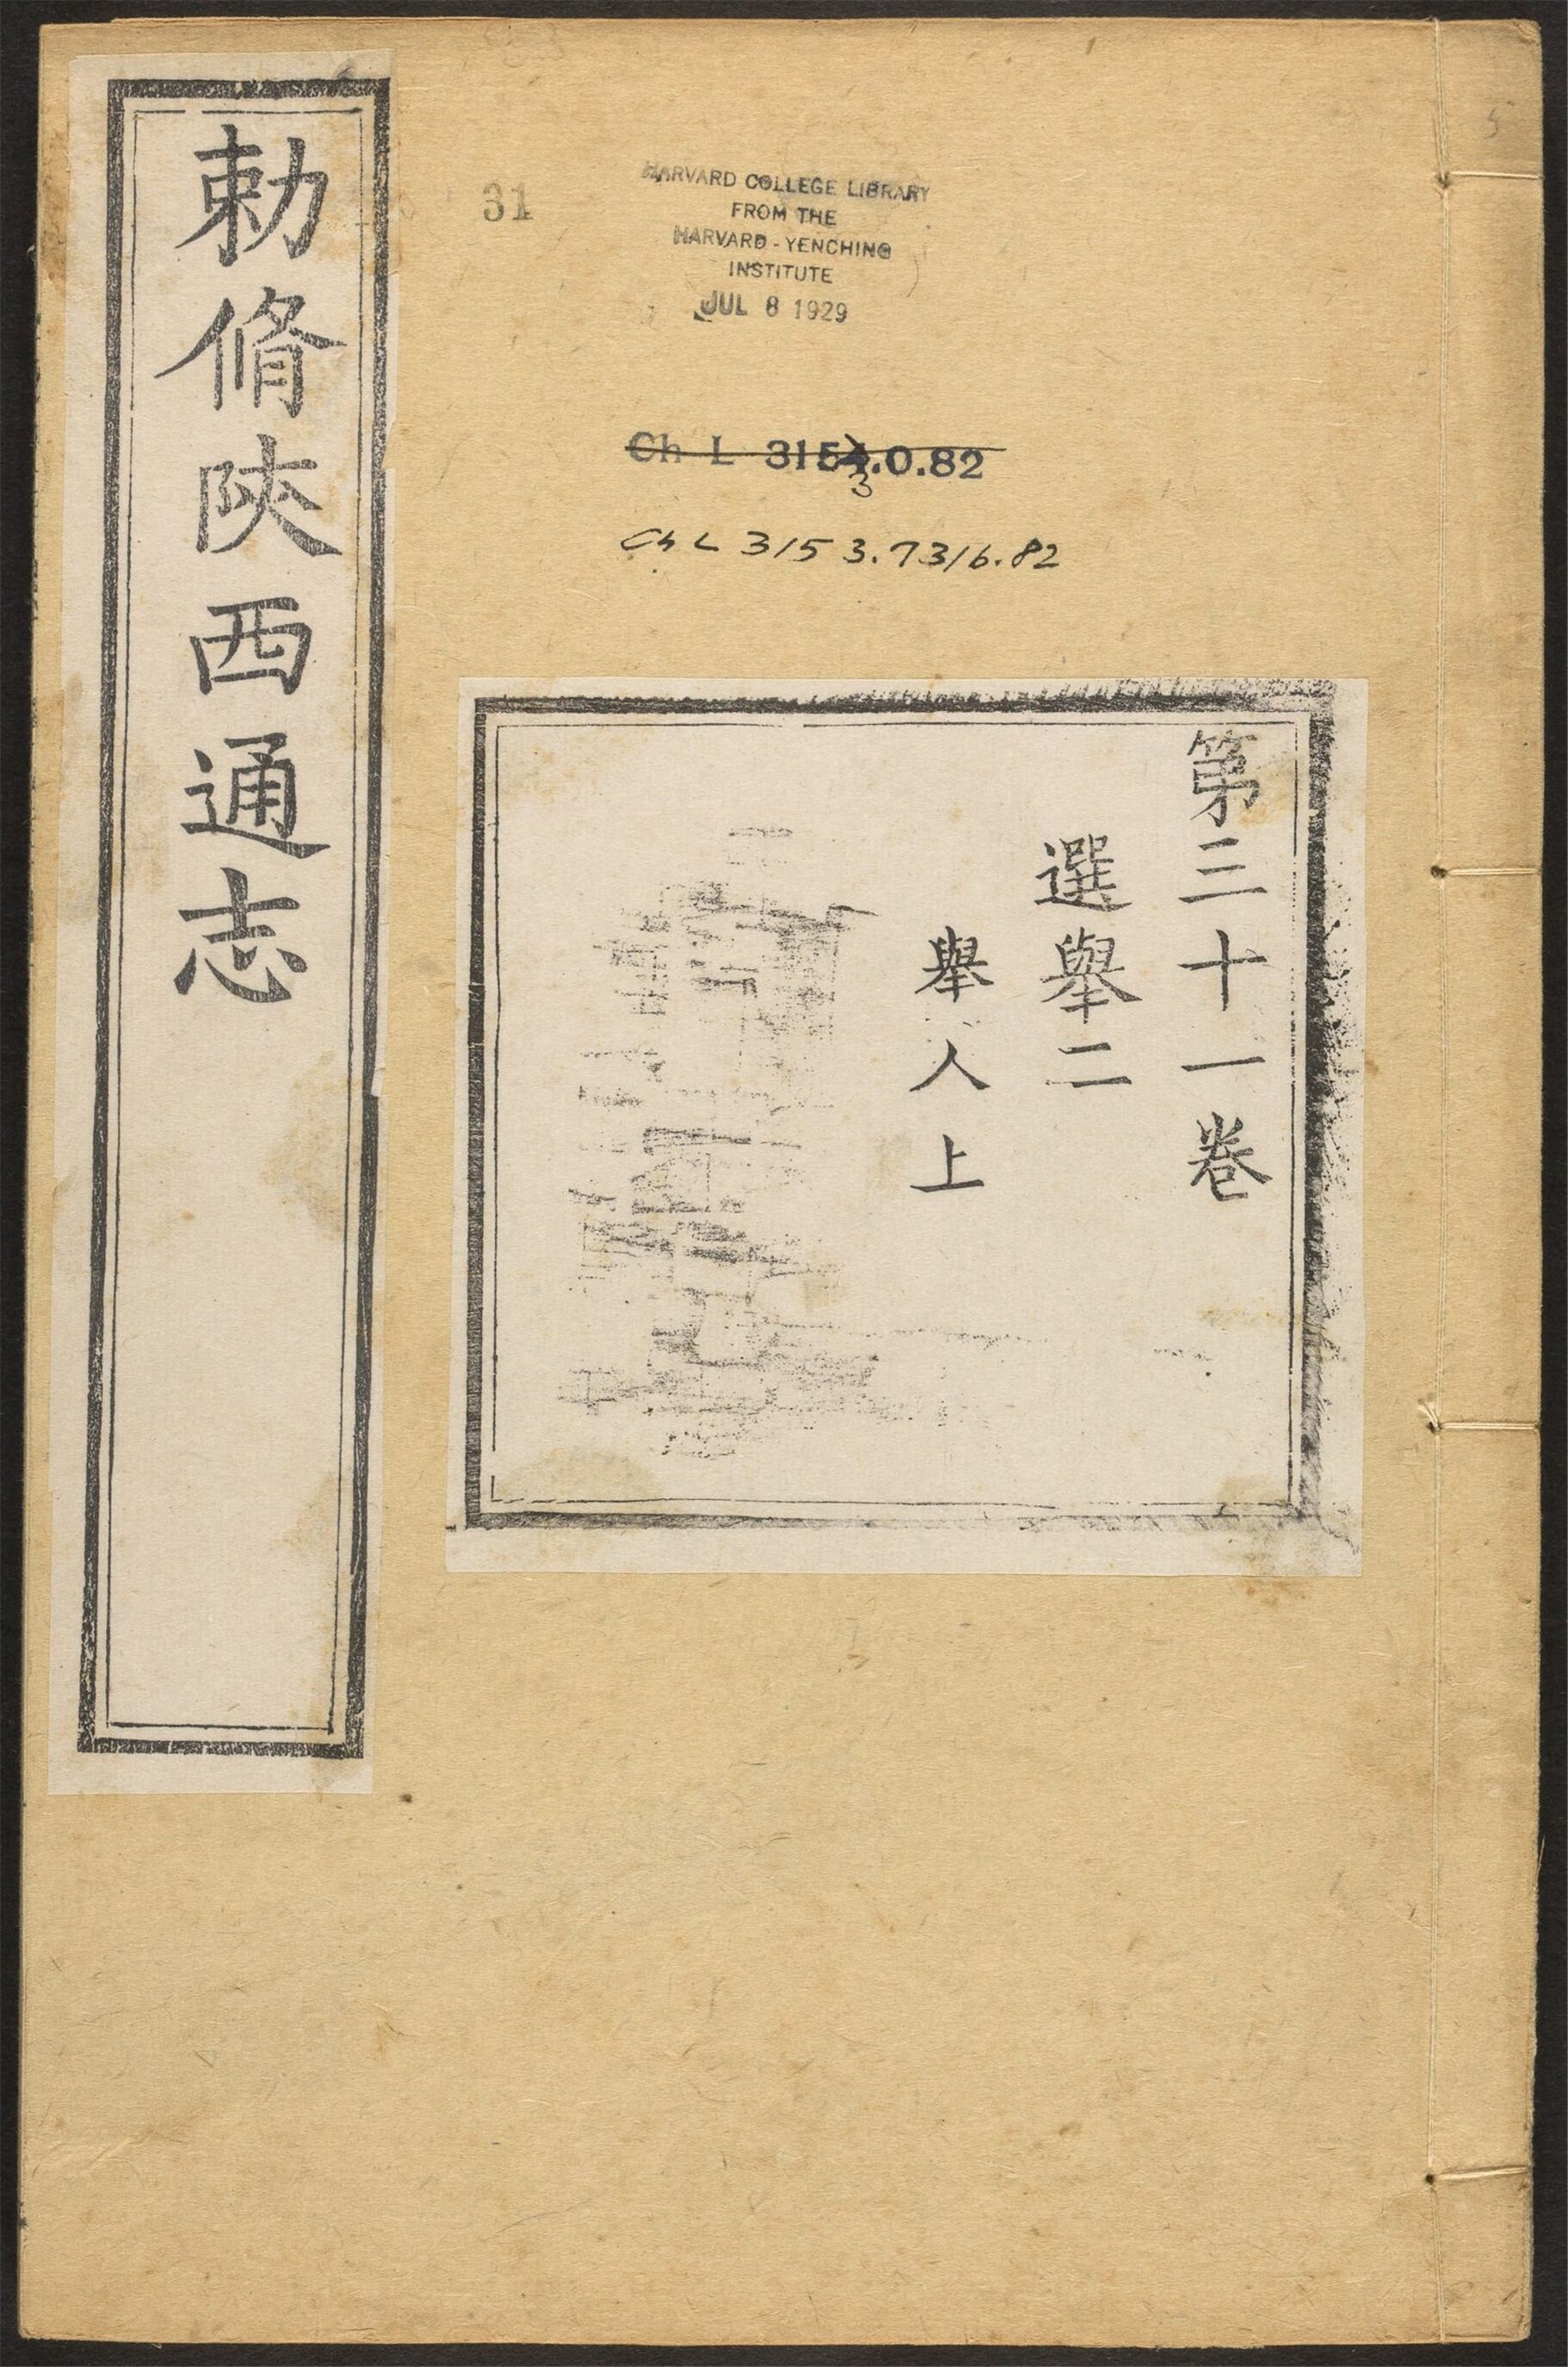 勅脩陝西通志
31
HARVARD COLLEGE LIBRARY
FROM THE
HARVARD-YENCHING
INSTITUTE
JUL 8 1929
Ch L 3153.0.82
Ch L 3153.7316.82
第三十一卷
選舉二
舉人上
5